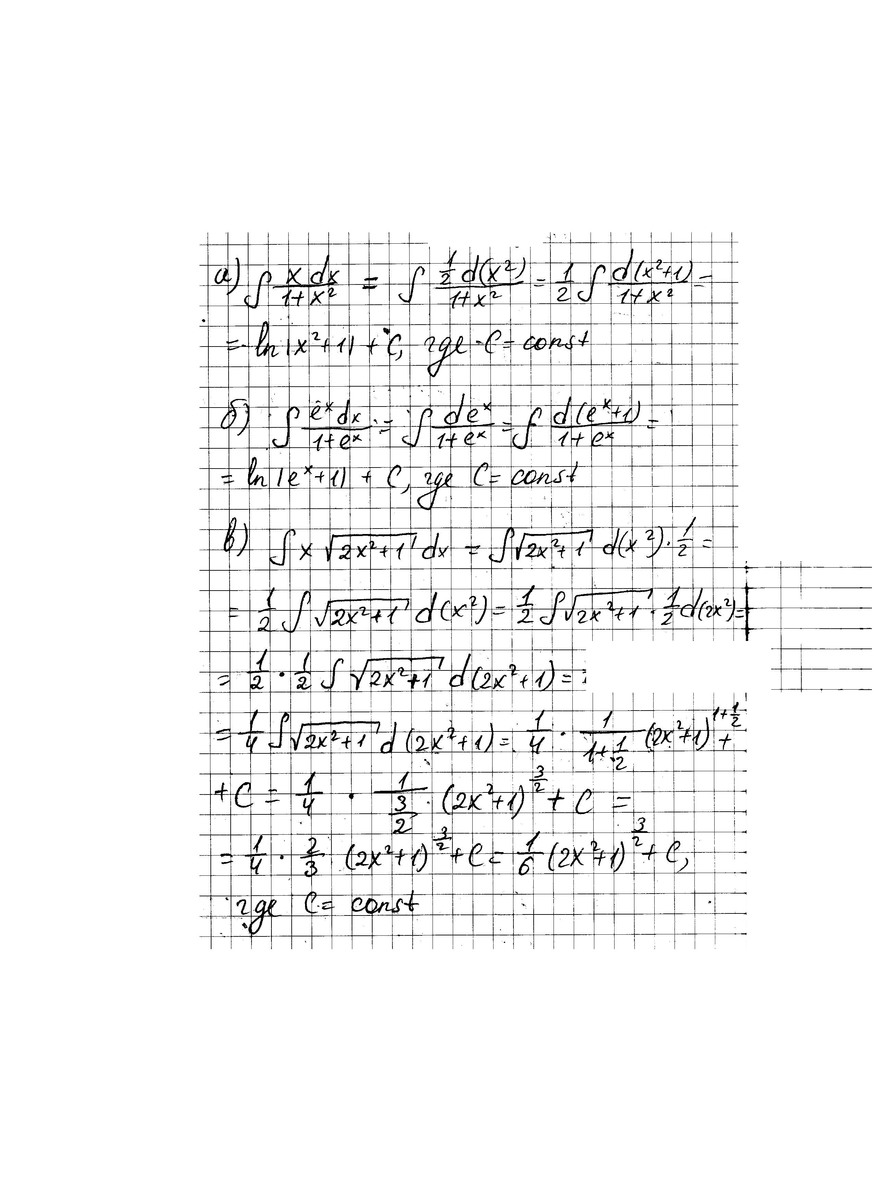 а) ∫ x dx / 1+x² = ∫ ½ d(x²) / 1+x² = ½ ∫ d(x²+1) / 1+x² =
= ln |x²+1| + C, где C = const
б) ∫ eˣ dx / 1+eˣ = ∫ deˣ / 1+eˣ = ∫ d(eˣ+1) / 1+eˣ =
= ln |eˣ+1| + C, где C = const
в) ∫ x √(2x²+1) dx = ∫ √(2x²+1) d(x²) · ½ =
= ½ ∫ √(2x²+1) d(x²) = ½ ∫ √(2x²+1) · ½ d(2x²) =
= ½ · ½ ∫ √(2x²+1) d(2x²+1) =
= ¼ ∫ √(2x²+1) d(2x²+1) = ¼ · 1/(1+½) (2x²+1)^(1+½) +
+ C = ¼ · 1/(3/2) · (2x²+1)^(3/2) + C =
= ¼ · ⅔ (2x²+1)^(3/2) + C = ⅙ (2x²+1)^(3/2) + C,
где C = const